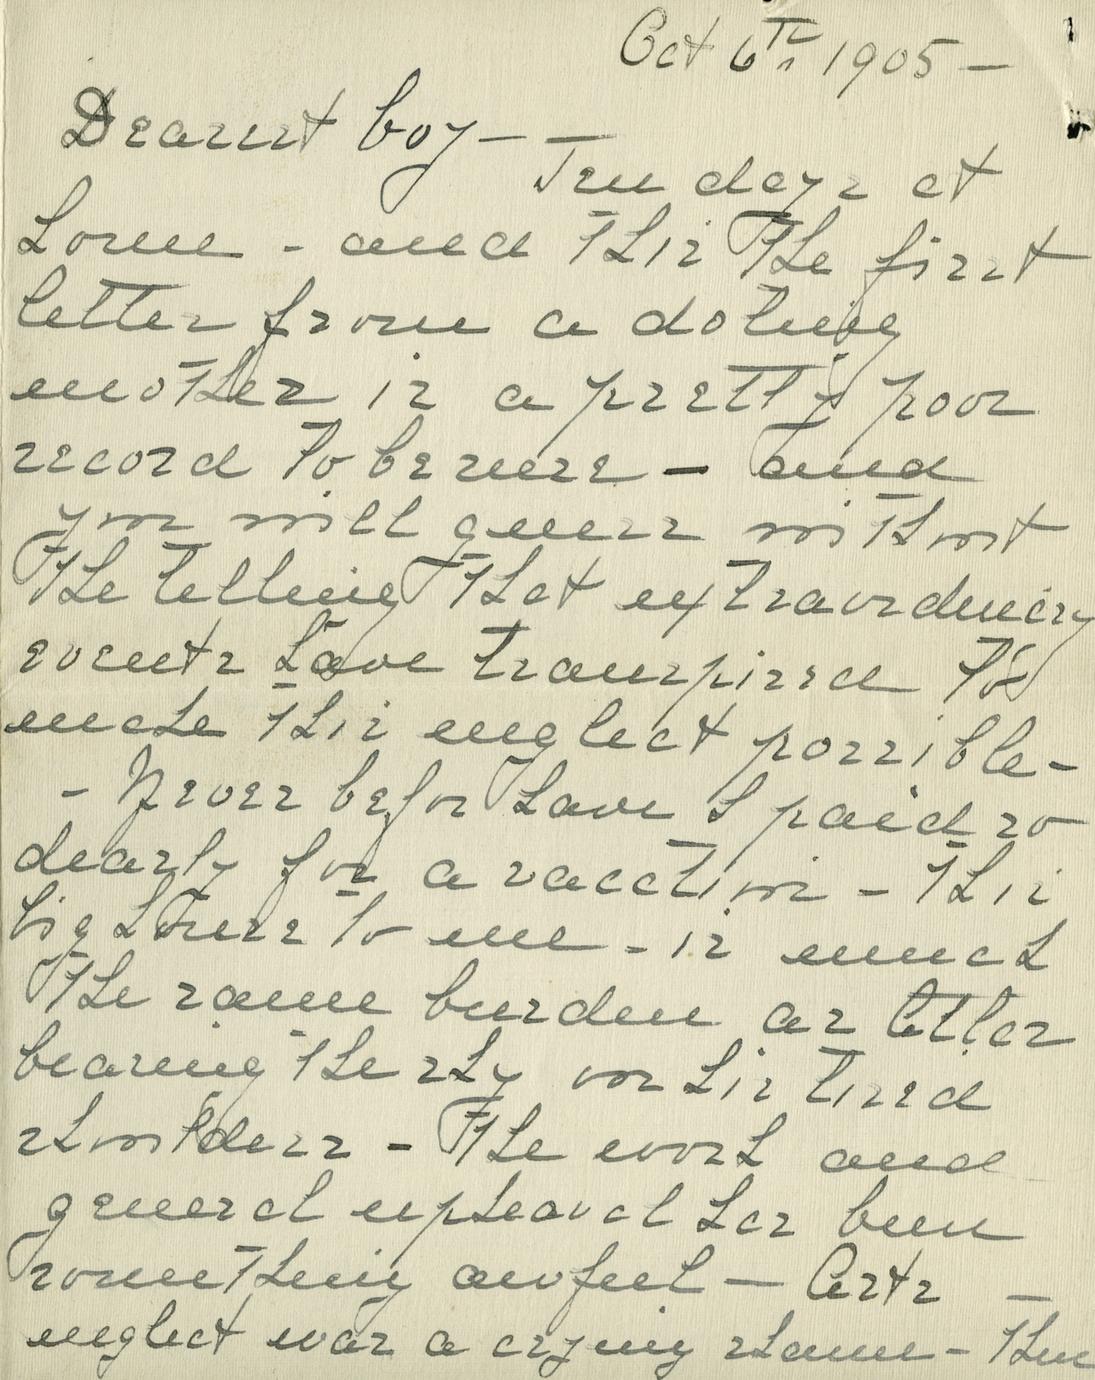 Oct 6th 1905 —
Dearest boy — — Ten days at
home - and this the first
letter from a doting
mother is a pretty poor
record to be sure — and
you will guess without
the telling that extraordinary
events have transpired to
make this neglect possible -
- Never before have I paid so
dearly for a vacation - this
big house to me - is much
the same burden as Atlas
bearing the sky on his tired
shoulders - The work and
general upheaval has been
something awful — Arts —
neglect was a crying shame - then